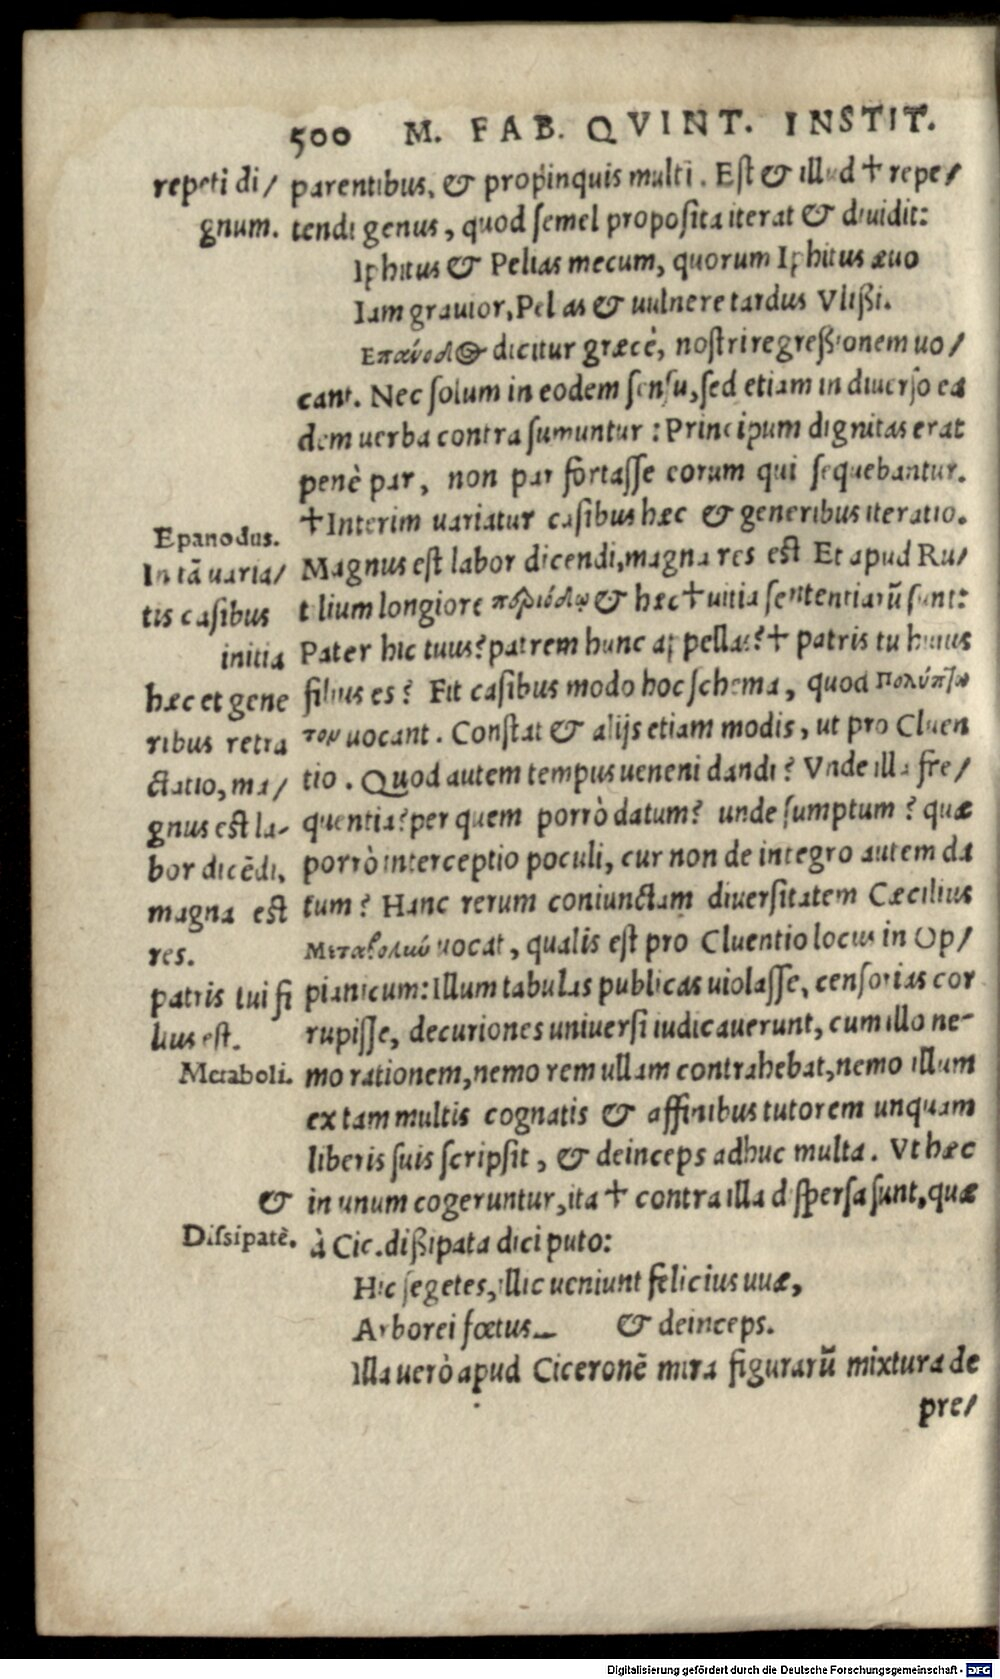 500 M. FAB. QVINT. INSTIT.
repeti di/
gnum.
parentibus, & propinquis multi. Est & illud † repe/
tendi genus, quod semel proposita iterat & diuidit:
Iphitus & Pelias mecum, quorum Iphitus æuo
Iam grauior, Pelias & uulnere tardus Vlißi.
Επάνοδος dicitur græcè, nostri regreßionem uo/
cant. Nec solum in eodem sensu, sed etiam in diuerso ea
dem uerba contra sumuntur: Principum dignitas erat
penè par, non par fortasse eorum qui sequebantur.
† Interim uariatur casibus hæc & generibus iteratio.
Magnus est labor dicendi, magna res est Et apud Ru/
tilium longiore περιόδῳ & hæc † uitia sententiarũ sunt:
Pater hic tuus? patrem hunc appellas? † patris tu huius
filius es? Fit casibus modo hoc schema, quod Πολύπτω
τον uocant. Constat & alijs etiam modis, ut pro Cluen
tio. Quod autem tempus ueneni dandi? Vnde illa fre/
quentia? per quem porrò datum? unde sumptum? quæ
porrò interceptio poculi, cur non de integro autem da
tum? Hanc rerum coniunctam diuersitatem Cæcilius
Μεταβολὼ uocat, qualis est pro Cluentio locus in Op/
pianicum: Illum tabulas publicas uiolasse, censorias cor
rupisse, decuriones uniuersi iudicauerunt, cum illo ne-
mo rationem, nemo rem ullam contrahebat, nemo illum
ex tam multis cognatis & affinibus tutorem unquam
liberis suis scripsit, & deinceps adhuc multa. Vt hæc
in unum cogeruntur, ita † contra illa dispersa sunt, quæ
à Cic. dißipata dici puto:
Hic segetes, illic ueniunt felicius uuæ,
Arborei fœtus_ & deinceps.
Illa uerò apud Ciceronẽ mira figurarũ mixtura de
pre/
Epanodus.
In tã uaria/
tis casibus
initia
hæc et gene
ribus retra
ctatio, ma/
gnus est la-
bor dicẽdi,
magna est
res.
patris tui fi
lius est.
Metaboli.
&
Dissipatè.
Digitalisierung gefördert durch die Deutsche Forschungsgemeinschaft - DFG